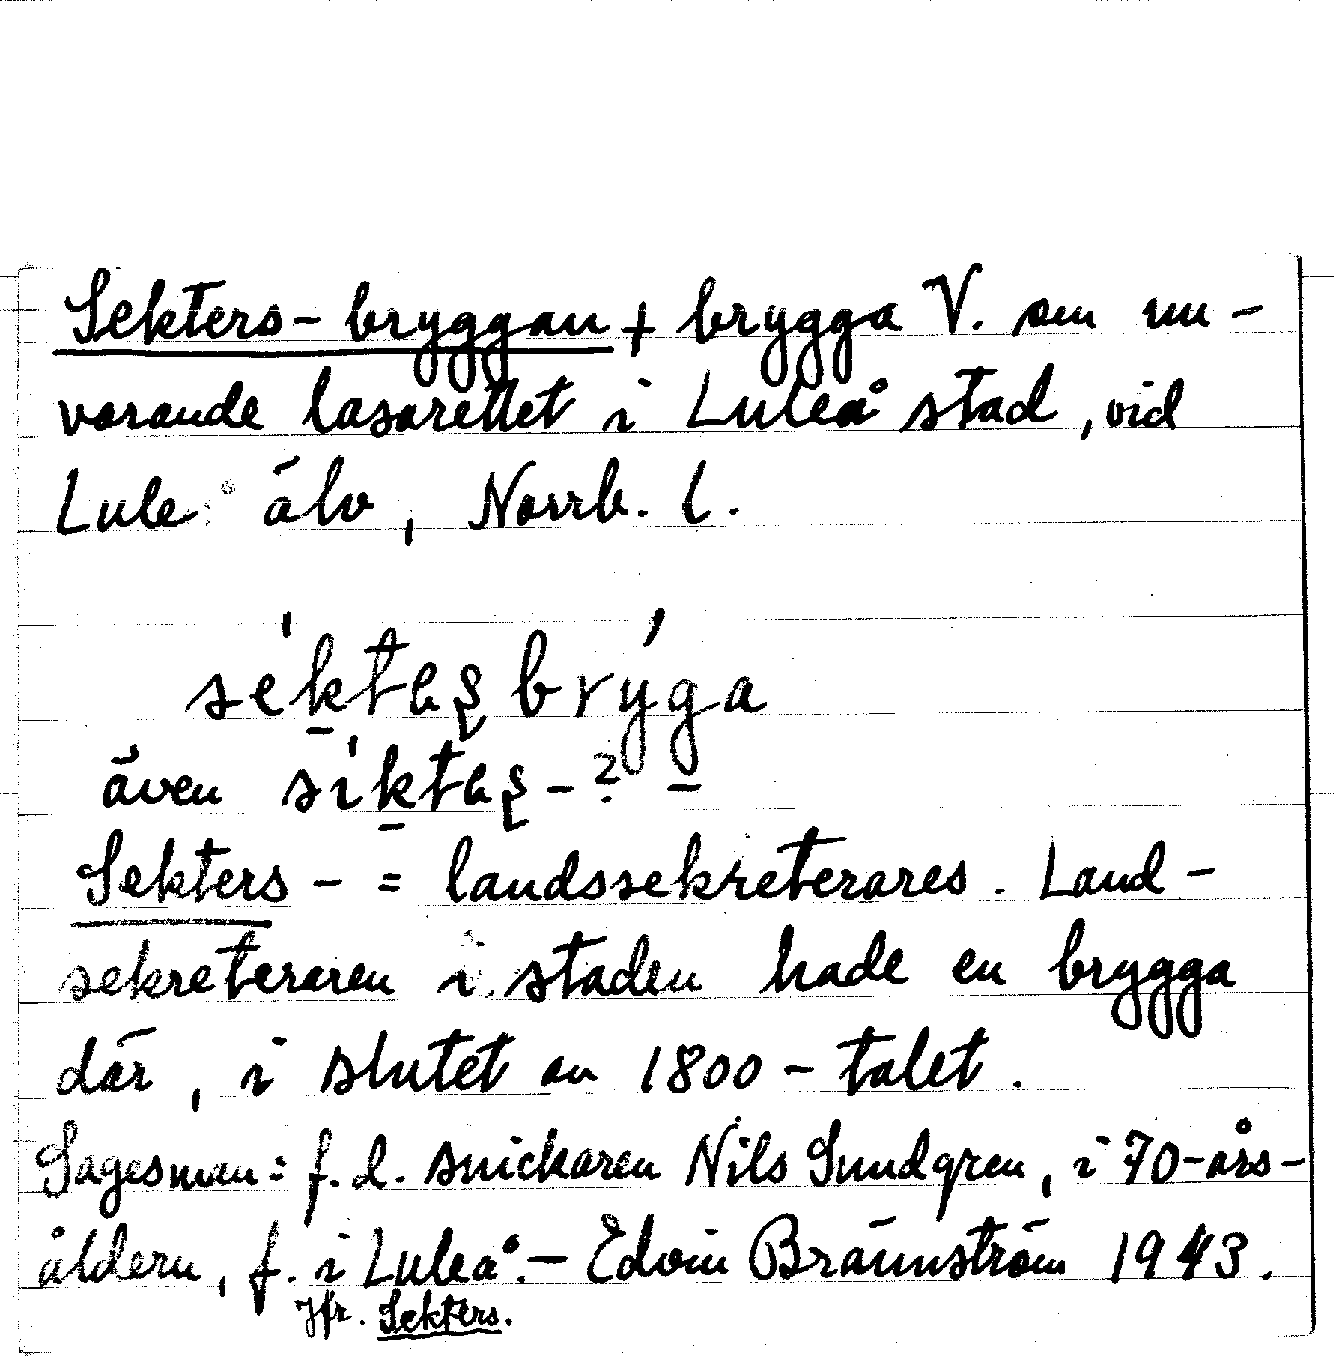 Sekters-bryggan + brygga V. om nu-
varande lasarettet i Luleå stad, vid
Lule älv, Norrb. l.
séktəʂ brýga
även síktəʂ- ? -
Sekters- = landssekreterares. Land-
sekreteraren i staden hade en brygga
där, i slutet av 1800-talet.
Sagesman: f.d. snickaren Nils Sundgren, i 70-års-
åldern, f. i Luleå. - Edvin Brännström 1943.
Jfr. Sekters.